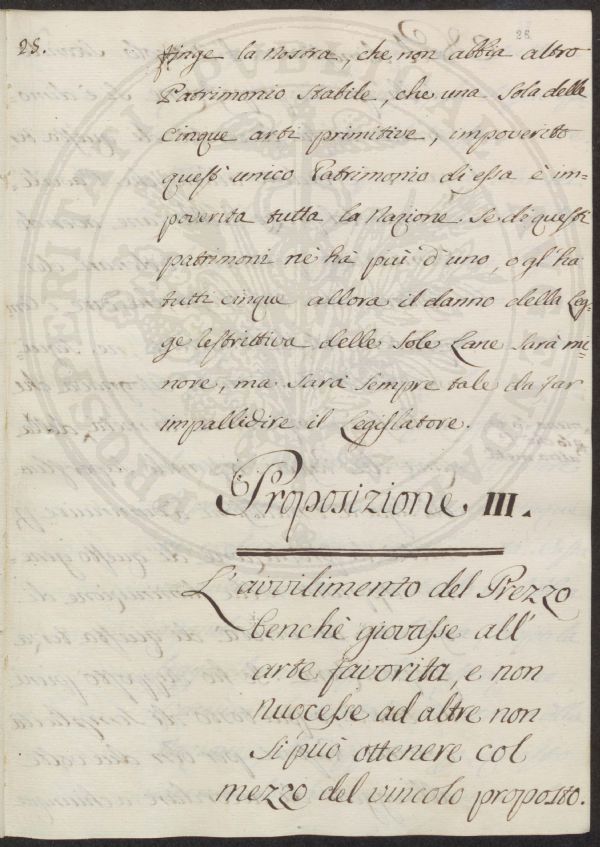 28.
28
finge la nostra, che non abbia altro
Patrimonio stabile, che una sola delle
cinque arti primitive, impoverito
quest' unico Patrimonio di essa è im=
poverita tutta la Nazione. Se di questi
patrimoni n'è hà più d'uno, o gl' ha
tutti cinque allora il danno della Leg=
ge restrittiva delle sole Lane sarà mi=
nore, ma sarà sempre tale da far
impallidire il Legislatore.
Proposizione III.
L'avvilimento del Prezzo
benchè giovasse all'
arte favorita, e non
nuocesse ad altre non
si può ottenere col
mezzo del vincolo proposto.